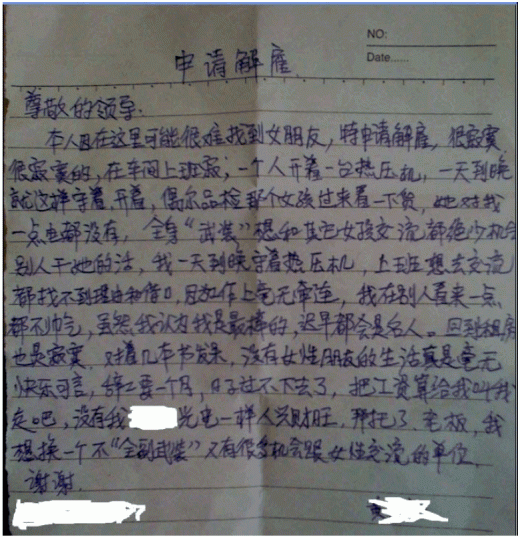 NO:
Date......
申请解雇
尊敬的领导:
本人因在这里可能很难找到女朋友,特申请解雇,很寂寞
很寂寞的,在车间上班寂;一个人开着一台热压机,一天到晚
就这样守着开着,偶尔品检那个女孩过来看一下货,她对我
一点电都没有,全身“武装”想和其它女孩交流都绝少机会
别人干她的活,我一天到晚守着热压机,上班想去交流
都找不到理由和借口,因加作上毫无牵连,我在别人看来一点
都不帅气,虽然我认为我是最棒的,迟早都会是名人。回到租房
也是寂寞,对着几本书发呆,没有女性朋友的生活真是毫无
快乐可言,辞工要一个月,日子过不下去了,把工资算给我叫我
走吧,没有我 光电一样人兴财旺,拜托了,老板,我
想换一个不“全副武装”又有很多机会跟女性交流的单位,
谢谢.